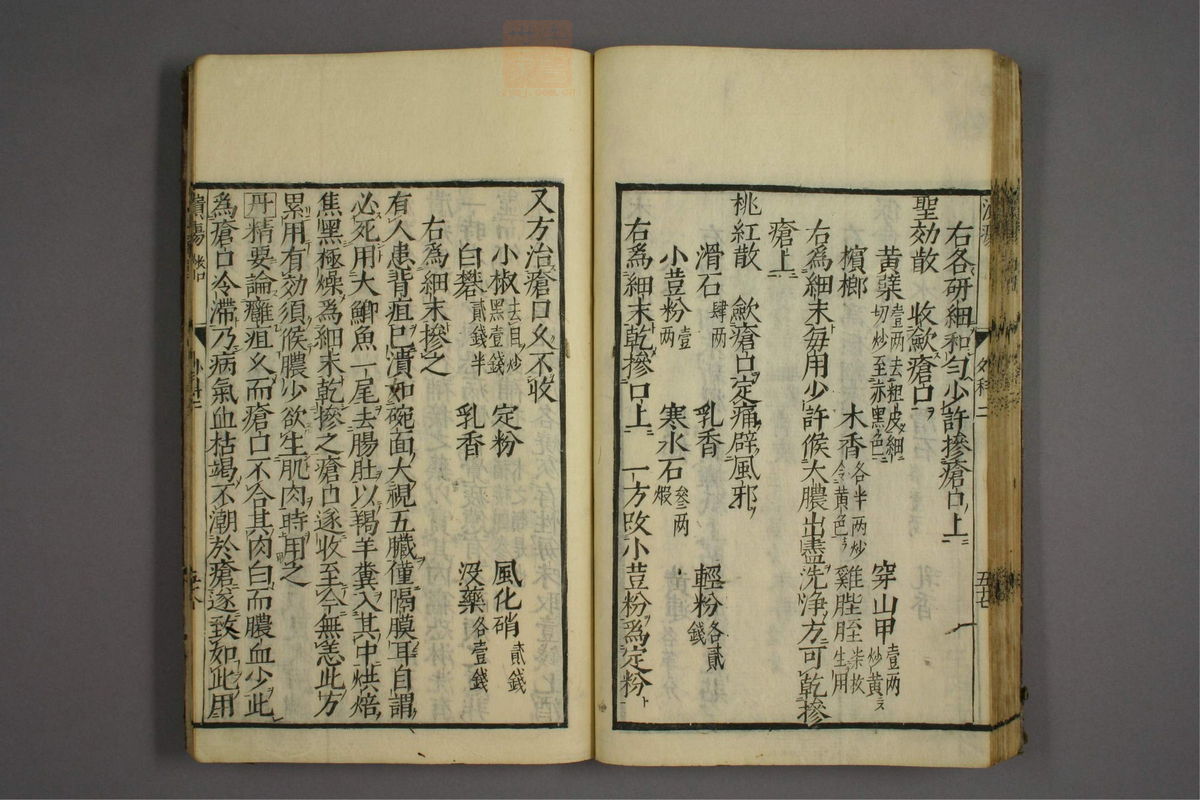 右各研細和勻少許摻瘡口上
聖効散　收歛瘡口
黄蘗壹两去粗皮細切炒至赤黑色　穿山甲壹两炒黄
檳榔　木香各半两炒令黄色　雞䏶胵生用
右爲細末每用少許候大膿出盡洗淨方可乾摻
瘡上
桃紅散　歛瘡口定痛辟風邪
滑石肆两　乳香　輕粉各貳錢
小荳粉壹两　寒水石叄两煅
右爲細末乾摻口上　一方改小荳粉爲定粉
又方治瘡口久不收
小椒去目炒黑壹錢　定粉　風化硝貳錢
白礬貳錢半　乳香　没藥各壹錢
右爲細末摻之
有人患背疽已潰如碗面大視五臟僅隔膜耳自謂
必死用大鯽魚一尾去腸肚以羯羊糞入其中烘焙
焦黑極燥爲細末乾摻之瘡口遂收至今無恙此方
累用有効須候膿少欲生肌肉時用之
丹精要論癰疽久而瘡口不合其肉白而膿血少此
爲瘡口冷滯乃病氣血枯竭不潮於瘡遂致如此用